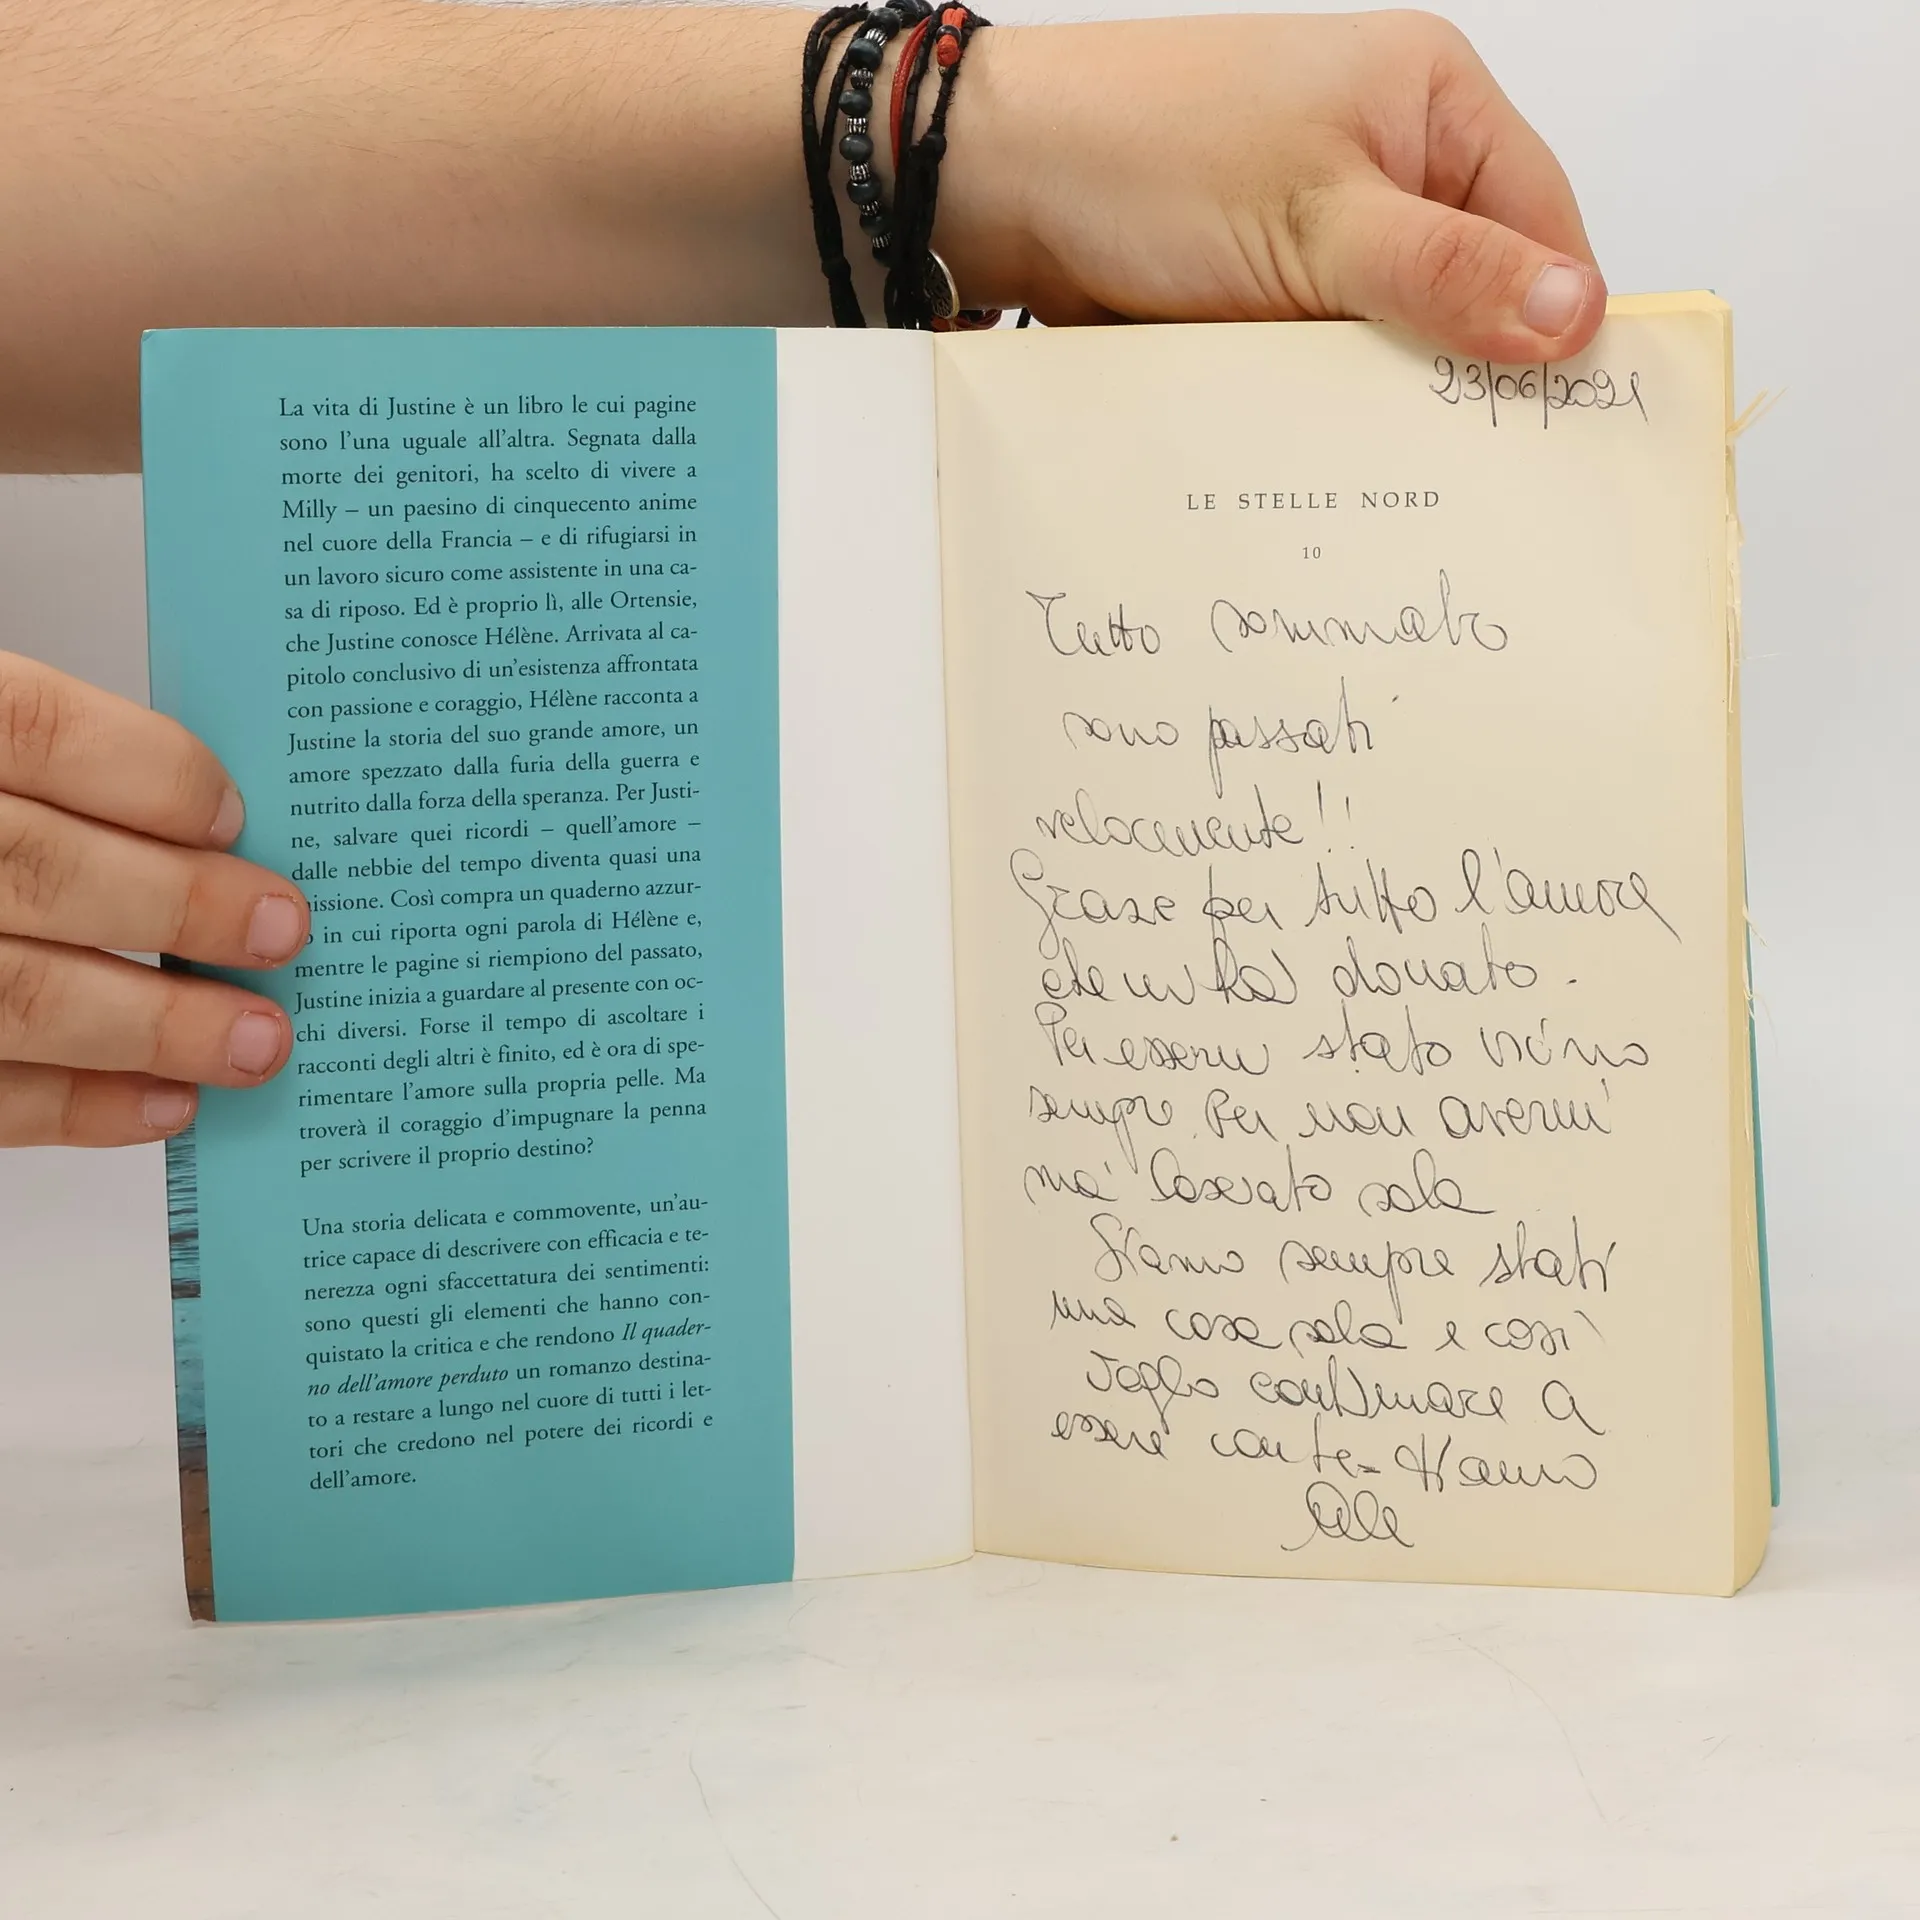 La vita di Justine è un libro le cui pagine
sono l'una uguale all'altra. Segnata dalla
morte dei genitori, ha scelto di vivere a
Milly – un paesino di cinquecento anime
nel cuore della Francia – e di rifugiarsi in
un lavoro sicuro come assistente in una ca-
sa di riposo. Ed è proprio lì, alle Ortensie,
che Justine conosce Hélène. Arrivata al ca-
pitolo conclusivo di un'esistenza affrontata
con passione e coraggio, Hélène racconta a
Justine la storia del suo grande amore, un
amore spezzato dalla furia della guerra e
nutrito dalla forza della speranza. Per Justi-
ne, salvare quei ricordi – quell'amore –
dalle nebbie del tempo diventa quasi una
issione. Così compra un quaderno azzur-
o in cui riporta ogni parola di Hélène e,
mentre le pagine si riempiono del passato,
Justine inizia a guardare al presente con oc-
chi diversi. Forse il tempo di ascoltare i
racconti degli altri è finito, ed è ora di spe-
rimentare l'amore sulla propria pelle. Ma
troverà il coraggio d'impugnare la penna
per scrivere il proprio destino?
Una storia delicata e commovente, un'au-
trice capace di descrivere con efficacia e te-
nerezza ogni sfaccettatura dei sentimenti:
sono questi gli elementi che hanno con-
quistato la critica e che rendono Il quader-
no dell'amore perduto un romanzo destina-
to a restare a lungo nel cuore di tutti i let-
tori che credono nel potere dei ricordi e
dell'amore.
23/06/2021
LE STELLE NORD
10
Tutto sommato
sono passati
velocemente!!
Grazie per tutto l'amore
che mi hai donato.
Per essermi stato vicino
sempre. Per non avermi
mai lasciato sola
Siamo sempre stati
una cosa sola e così
voglio continuare a
essere con te. Ti amo
Ale